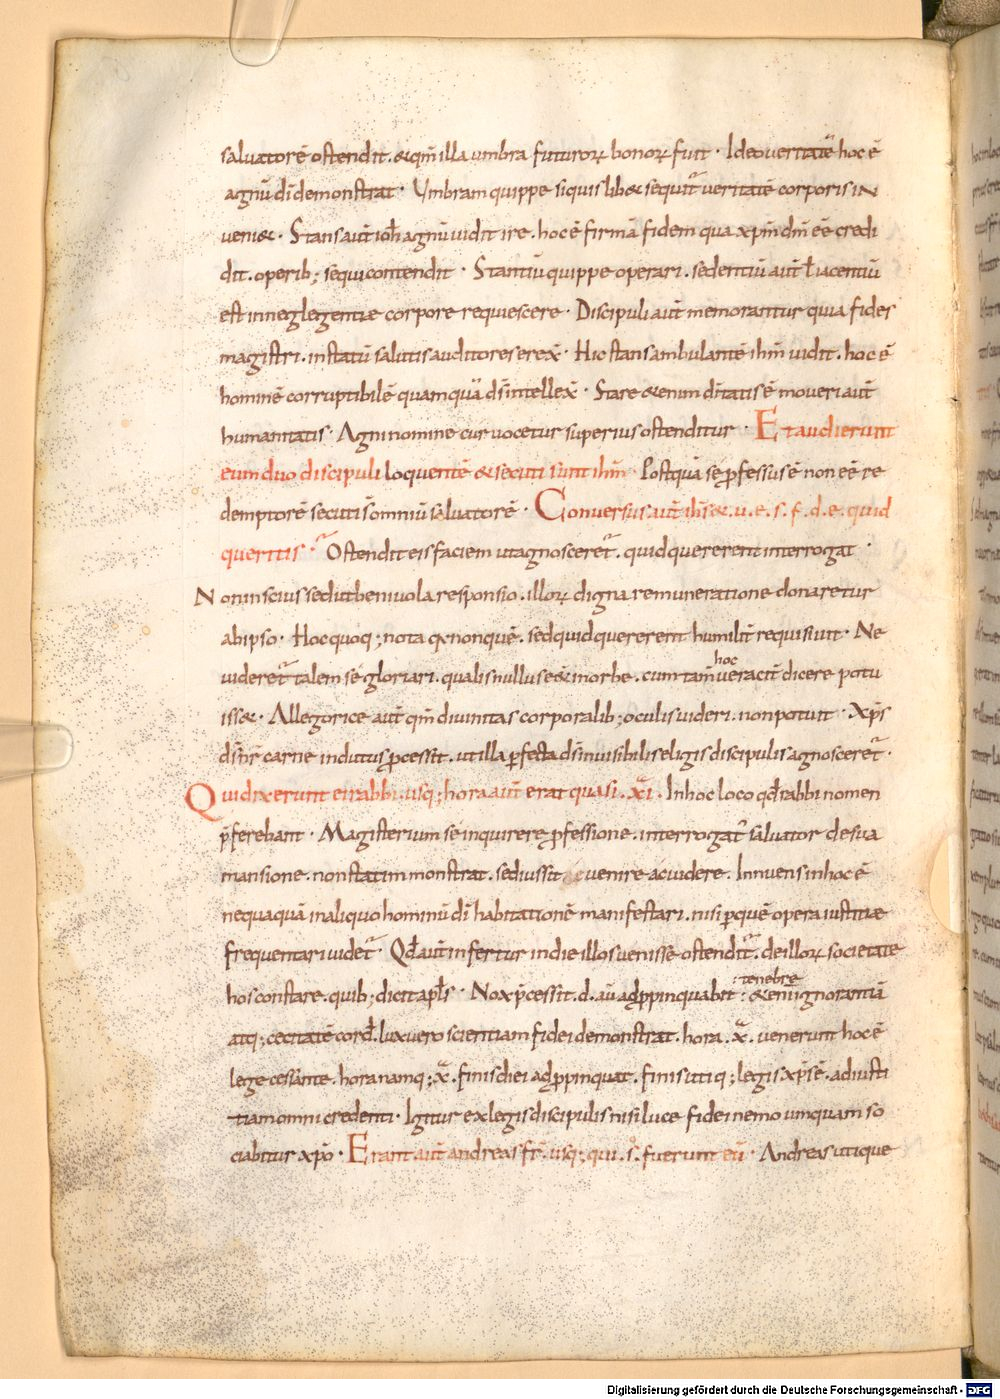 saluatorē ostendit. & qm̄ illa umbra futuroꝝ bonoꝝ fuit · Ideo ueritatē hoc ē
agnū dī demonstrat · Umbram quippe siquis libet sequit᷑ ueritatē corporis in
ueniet · Stans aut̄ ioh̄ agnū uidit ire. hoc ē firmā fidem qua xp̄m dm̄ eē credi
dit. operib; sequi contendit · Stantiū quippe operari. sedentiū aut̄ ł iacentiū
est in neglegentiæ corpore requiescere · Discipuli aut̄ memorantur quia fides
magistri. in statū salutis auditores erex̄ · Hic stans ambulantē ih̄m uidit. hoc ē
hominē corruptibilē quamquā ds̄ intellex̄ · Stare & enim dı̄tatis ē moueri aut̄
humanitatis · Agni nomine cur uocetur superius ostenditur · Et audierunt
eum duo discipuli loquentē & secuti sunt ih̄m · Postquā se ꝓfessus ē non eē re
demptorē secuti s̄ omniū saluatorē · Conuersus aut̄ ih̄s &. u. e. s. f. d. e. quid
queritis · Ostendit eis faciem ut agnosceret᷑. quid quererent interrogat ·
Non inscius sed ut beniuola responsio. illoꝝ digna remuneratione donaretur
ab ipso · Hoc quoq; nota qꝛ non quē. sed quid quererent humilit̄ requisiuit · Ne
uideret᷑ talem se gloriari. qualis nullus eēt in orbe. cum tam̄ hoc ueracit̄ dicere potu
isset · Allegorice aut̄ qm̄ diuinitas corporalib; oculis uideri. non potuit · Xp̄s
ds̄ nr̄ carne indutus ꝓcessit. ut illa ꝑfecta ds̄ inuisibilis eligis discipulis agnosceret᷑ ·
Qui dixerunt ei rabbi. usq; hora aut̄ erat quasi. x̄. In hoc loco qd̄ rabbi nomen
p̄ferebant · Magisterium se inquirere ꝓfessione. interrogat᷑ saluator de sua
mansione. non statim monstrat. sed iussit uenire ac uidere. Innuens in hoc ē
nequaquā in aliquo hominū dī habitationē manifestari. nisi ꝑ quē opera iustitiæ
frequentari uidet᷑ · Qd̄ aut̄ infertur in die illos uenisse ostendit᷑. de illoꝝ societate
hos constare. quib; dicit apl̄s · Nox p̄cessit. d. aū adꝓpinquabit : tenebre & eni ignorantiā
atq; cecitatē cord̄. lux uero scientiam fidei demonstrat. hora. x̄. uenerunt hoc ē
lege cessante. hora namq; x̄. finis diei adꝓpinquat. finis utiq; legis xp̄s ē. ad iusti
tiam omni credenti · Igitur ex legis discipulis nisi luce fidei nemo umquam so
ciabitur xp̄o · Erant aut̄ andreas fr̄. usq; qui. s. fuerunt eū · Andreas utique
Digitalisierung gefördert durch die Deutsche Forschungsgemeinschaft - DFG